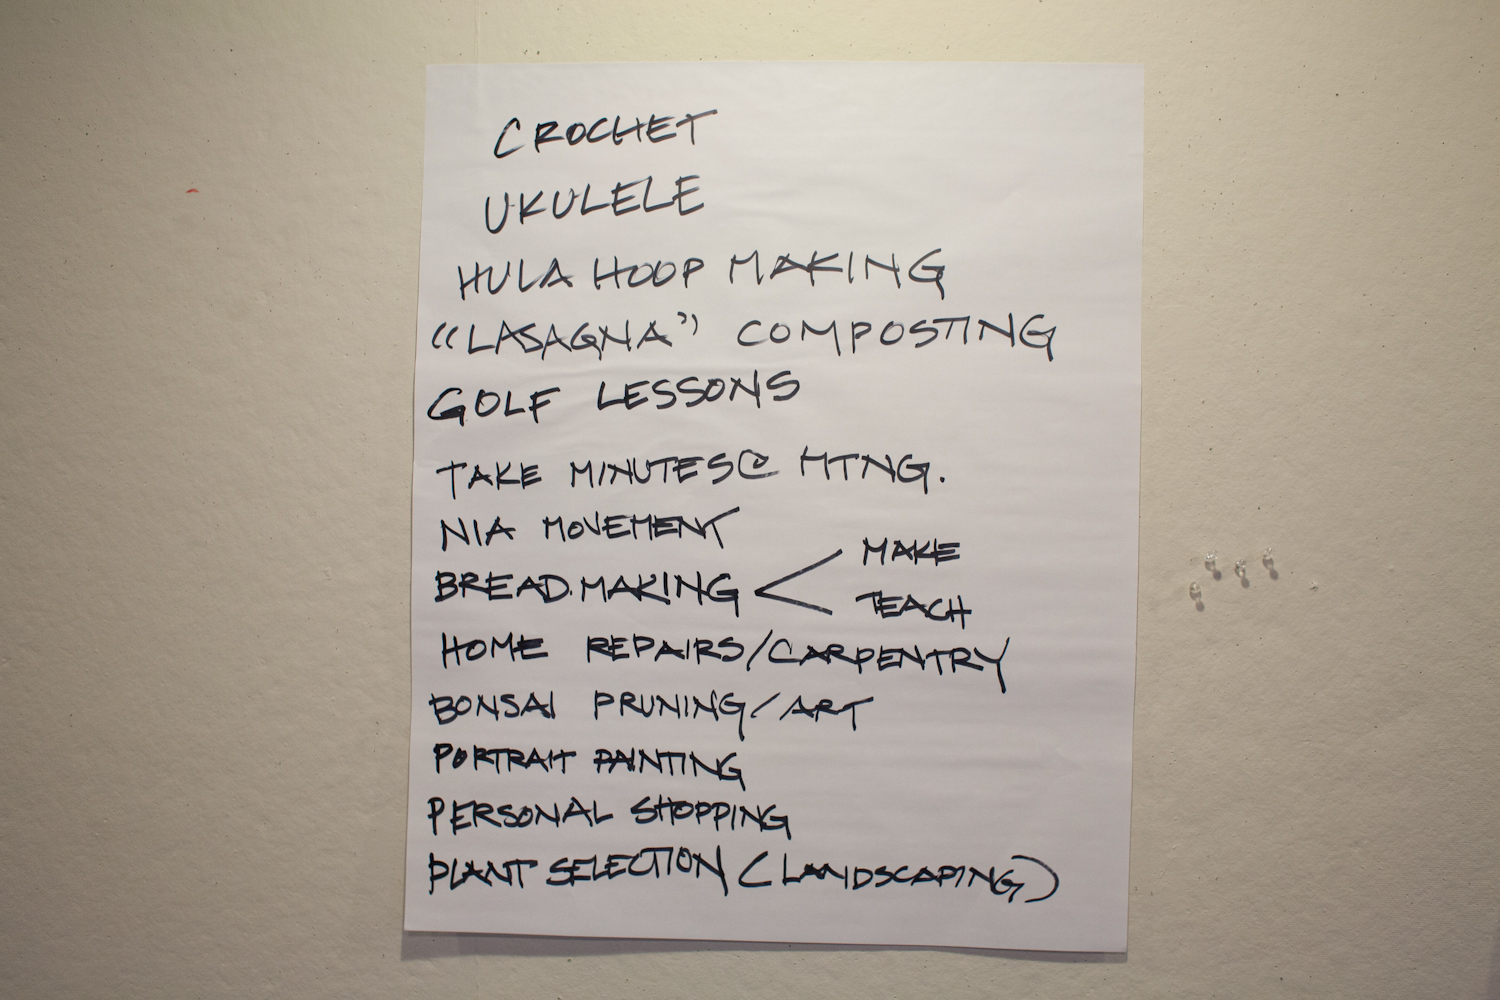 CROCHET
UKULELE
HULA HOOP MAKING
"LASAGNA" COMPOSTING
GOLF LESSONS
TAKE MINUTES @ MTNG.
NIA MOVEMENT
BREAD MAKING < MAKE
TEACH
HOME REPAIRS/CARPENTRY
BONSAI PRUNING/ART
PORTRAIT PAINTING
PERSONAL SHOPPING
PLANT SELECTION (LANDSCAPING)